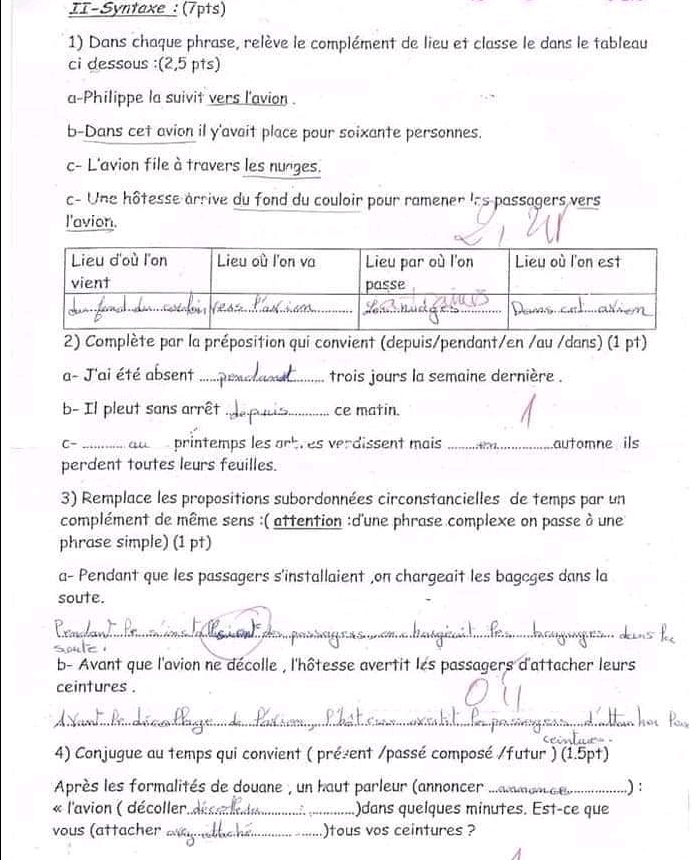 II-Syntaxe : (7pts)
1) Dans chaque phrase, relève le complément de lieu et classe le dans le tableau
ci dessous :(2,5 pts)
a-Philippe la suivit vers l'avion .
b-Dans cet avion il y'avait place pour soixante personnes.
c- L'avion file à travers les nuages.
c- Une hôtesse arrive du fond du couloir pour ramener les passagers vers
l'avion.
2,25
Lieu d'où l'on vient
Lieu où l'on va
Lieu par où l'on passe
Lieu où l'on est
du fond du couloir
vers l'avion
Les nudges
Dans cet avion
2) Complète par la préposition qui convient (depuis/pendant/en /au /dans) (1 pt)
a- J'ai été absent .....pendant........ trois jours la semaine dernière .
b- Il pleut sans arrêt ..depuis............ ce matin.
1
c- ............ au printemps les arbres verdissent mais ........en.............automne ils
perdent toutes leurs feuilles.
3) Remplace les propositions subordonnées circonstancielles de temps par un
complément de même sens :( attention :d'une phrase complexe on passe à une
phrase simple) (1 pt)
a- Pendant que les passagers s'installaient ,on chargeait les bagages dans la
soute.
Pendant des passagers on chargeait les dans la
soute.
b- Avant que l'avion ne décolle , l'hôtesse avertit les passagers d'attacher leurs
ceintures .
Avant le décollage de l'avion, l'hôtesse avertit les passagers d'attacher
ceintures.
4) Conjugue au temps qui convient ( présent /passé composé /futur ) (1.5pt)
Après les formalités de douane , un haut parleur (annoncer ...annonce..............) :
« l'avion ( décoller..décollera.....................)dans quelques minutes. Est-ce que
vous (attacher avez attaché....................)tous vos ceintures ?